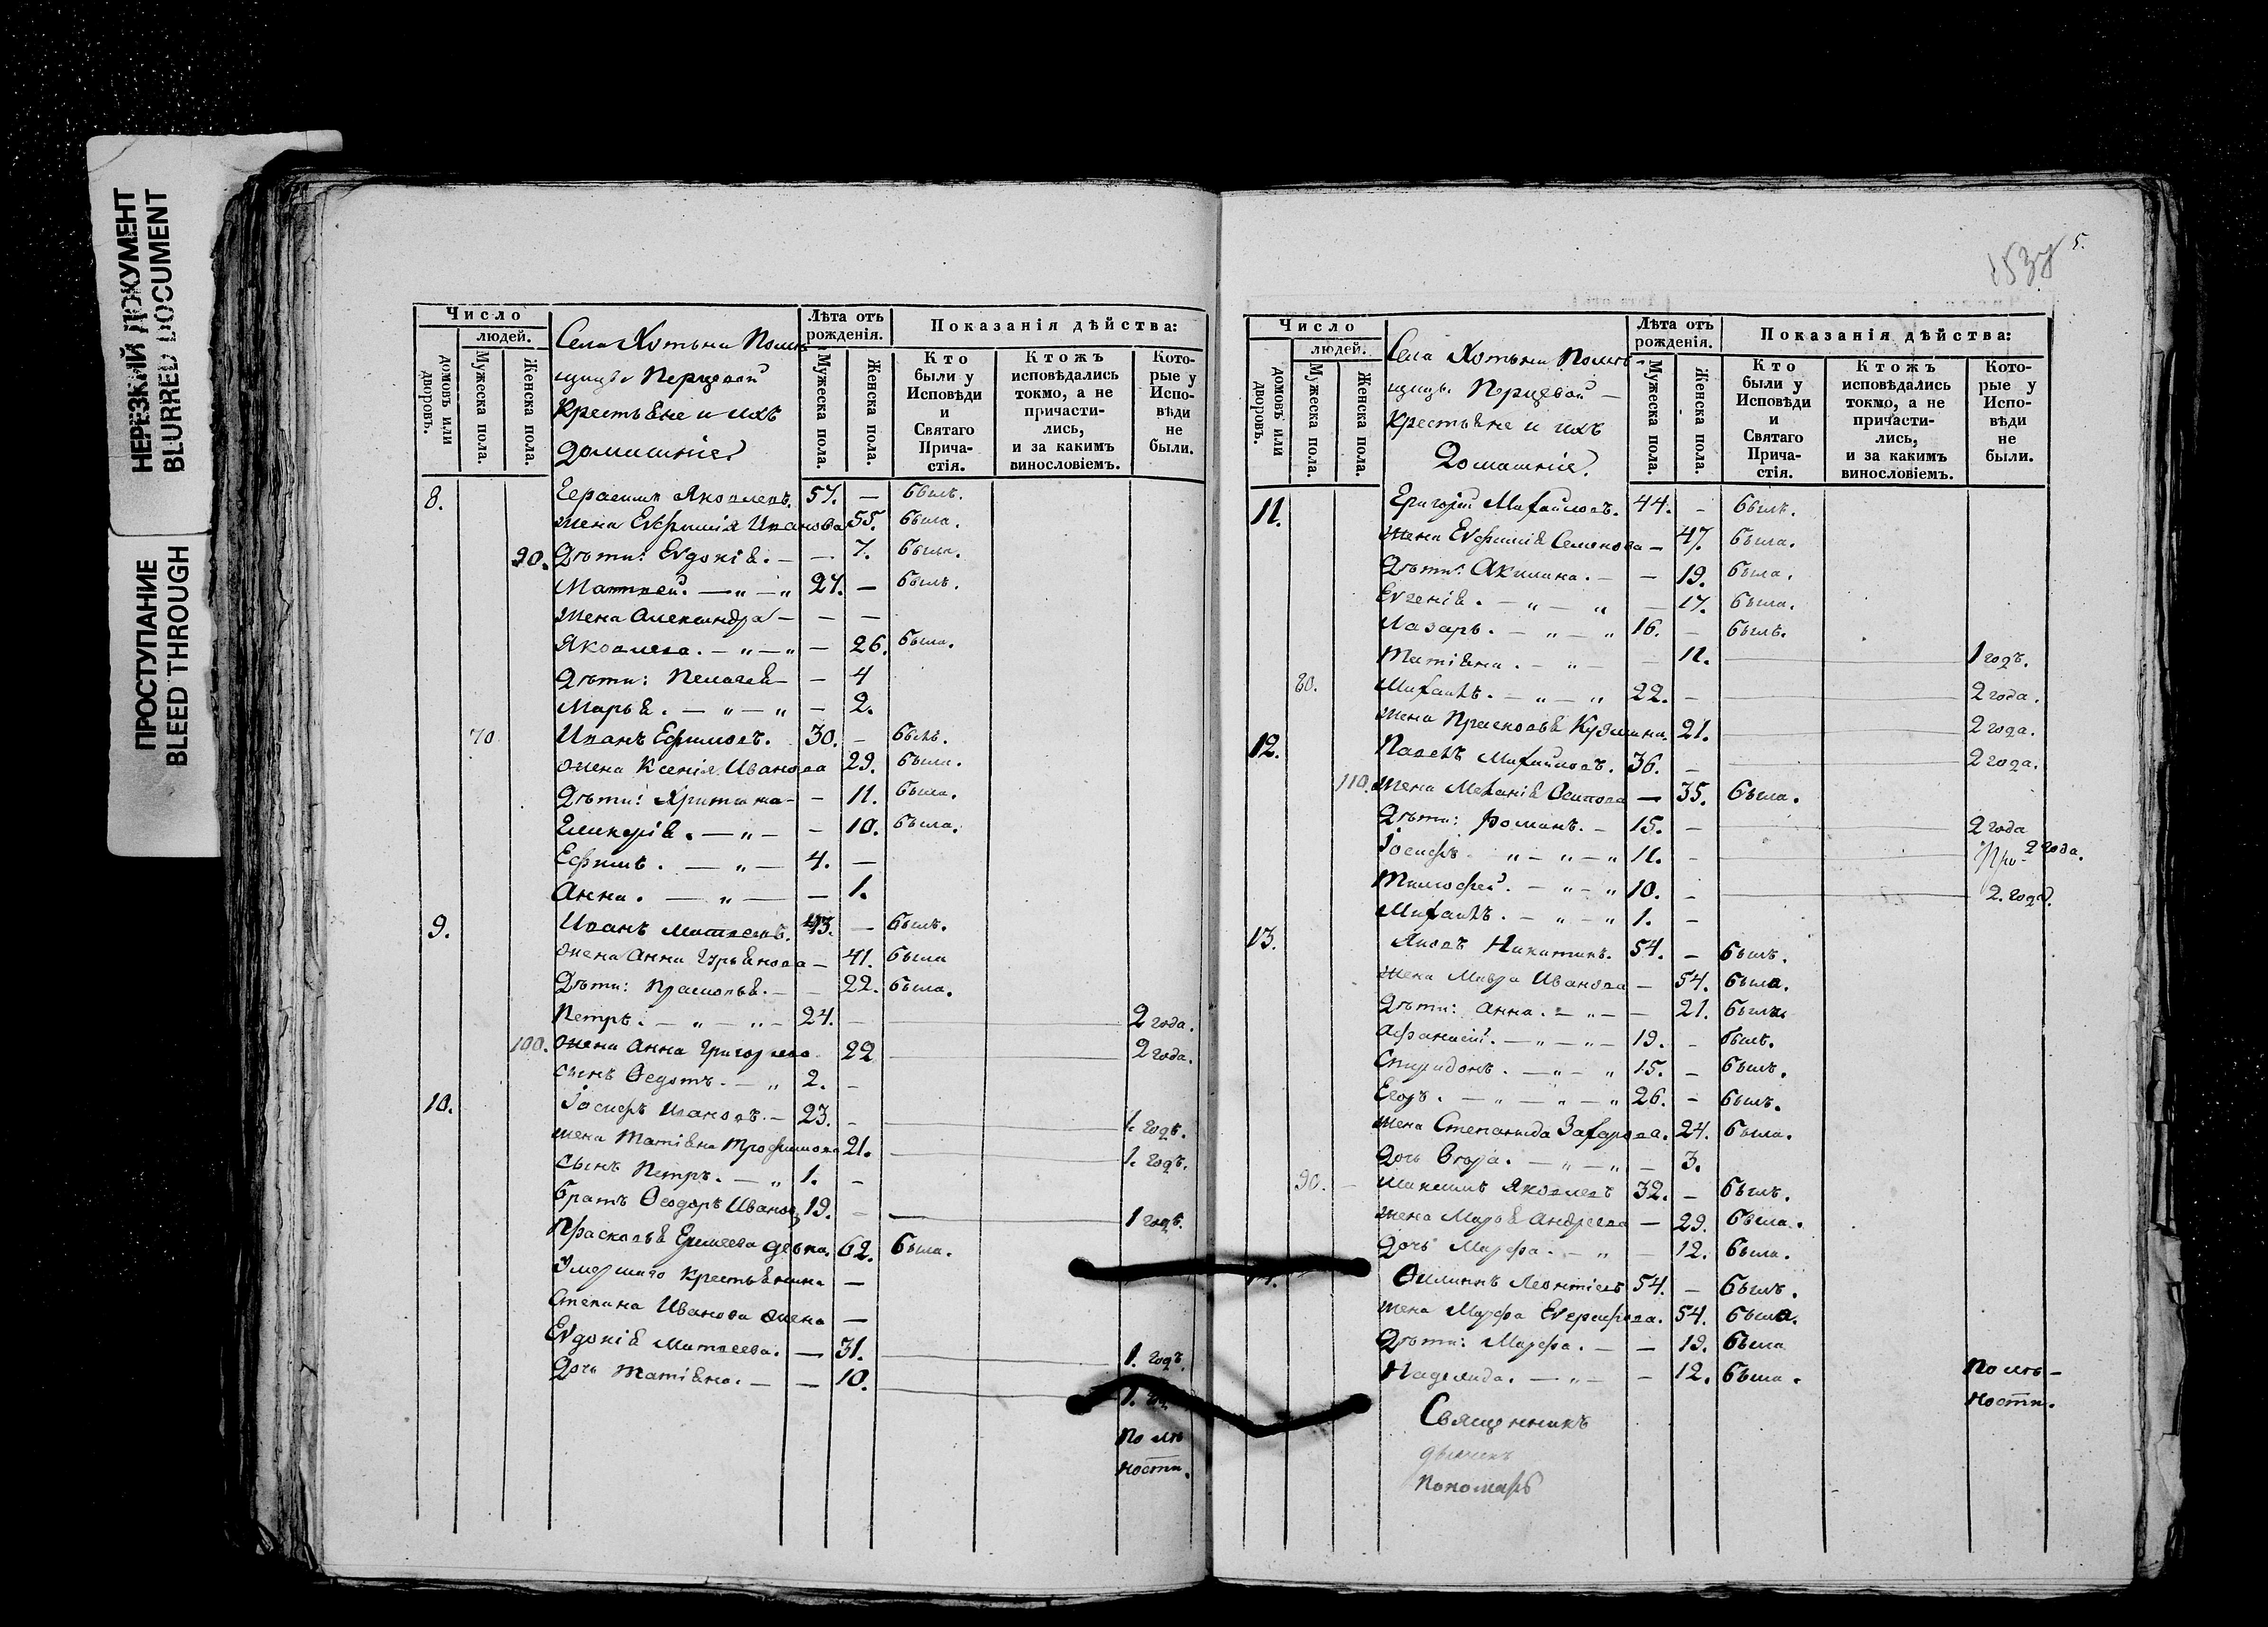 НЕРЕЗКИЙ ДОКУМЕНТ
BLURRED DOCUMENT
ПРОСТУПАНИЕ
BLEED THROUGH
Число
людей.
домовъ или дворовъ.
Мужеска пола.
Женска пола.
Села Хотьни Помѣ
щицы Перцевой
Крестьяне и ихъ
домашніе
Лѣта отъ рожденія.
Мужеска пола.
Женска пола.
Показанія дѣйства:
Кто были у Исповѣди и Святаго Прича-стія.
Ктожъ исповѣдались токмо, а не причасти-лись, и за какимъ винословіемъ.
Кото-рые у Испо-вѣди не были.
8. Герасимъ Яковлевъ. 57. — былъ.
жена Евфимія Иванова 55. была.
90. Дѣти: Евдокія. — — 7. была.
Матвей. — „ — „ 27. — былъ.
жена Александра — — —
Яковлева. — „ — „ — 26. была.
дѣти: Пелагея — — 4
Марья. — „ — „ — 2.
70 Иванъ Ефимовъ. 30. — былъ.
жена Ксенія Иванова 29. была.
Дѣти: Христина — — 11. была.
Гликерія. — „ — — 10. была.
Ефимъ. — „ — 4. —
Анна. — „ — — 1.
9. Иванъ Матвеевъ. 43. — былъ.
жена Анна Гурьянова — 41. была
Дѣти: Прасковья. — — 22. была.
Петръ. — „ — „ — 24. — 2 года.
100. жена Анна Григорьева 22 2 года.
сынъ Ѳедотъ. — „ 2. —
10. Іосифъ Ивановъ. — 23. — 1. годъ.
жена Татіяна Трофимова 21. 1. годъ.
сынъ Петръ. — „ 1. —
братъ Ѳеодоръ Ивановъ 19. — 1 годъ.
Прасковья Елисеева девка. 62. была.
Умершаго крестьянина —
Степана Иванова жена —
Евдокія Матвеева. — 31. 1. годъ.
дочь Татіяна. — — 10. 1.
По мѣ
ности.
5.
Число
людей.
домовъ или дворовъ.
Мужеска пола.
Женска пола.
Села Хотьни Помѣ-
щицы Перцевой —
Крестьяне и ихъ
Домашніе.
Лѣта отъ рожденія.
Мужеска пола.
Женска пола.
Показанія дѣйства:
Кто были у Исповѣди и Святаго Прича-стія.
Ктожъ исповѣдались токмо, а не причасти-лись, и за какимъ винословіемъ.
Кото-рые у Испо-вѣди не были.
11. Григорій Михайловъ. 44. — былъ.
жена Евфимія Семенова — 47. была.
Дѣти: Акилина. — — 19. была.
Евгенія. — „ — „ — 17. была.
Лазарь. — „ — „ 16. — былъ.
Татіяна. — „ — — 11. 1 годъ.
80. Михаилъ. — „ — „ 22. — 2 года.
жена Прасковья Кузмина. 21. 2 года.
12. Павелъ Михайловъ. 36. — 2 года.
110. жена Меланія Осипова — 35. была.
Дѣти: Романъ. — 15. — 2 года
Іосифъ „ — „ — „ 11. — 2 года.
Тимофей. — „ — „ 10. — 2. года.
Михаилъ. — „ — „ 1. —
13. Яковъ Никитинъ. 54. — былъ.
жена Мавра Иванова — 54. была.
дѣти: Анна. — „ — — 21. была
Афанасій. — „ — „ — 19. — былъ.
Спиридонъ. — „ — „ 15. — былъ.
Егоръ. — „ — „ — „ 26. — былъ.
жена Степанида Захарова. 24. была.
дочь Ѳекла. — „ — „ — 3.
90. Максимъ Яковлевъ 32. — былъ.
жена Марья Андреева — 29. была.
дочь Марфа. — „ — 12. была.
Филиппъ Леонтіевъ 54. — былъ.
жена Марфа Евграфова. 54. была.
дѣти: Марфа. — — 19. была
Надежда. — „ — — 12. была.
По мѣ-
ности.
Священникъ
дьячекъ
Пономарь